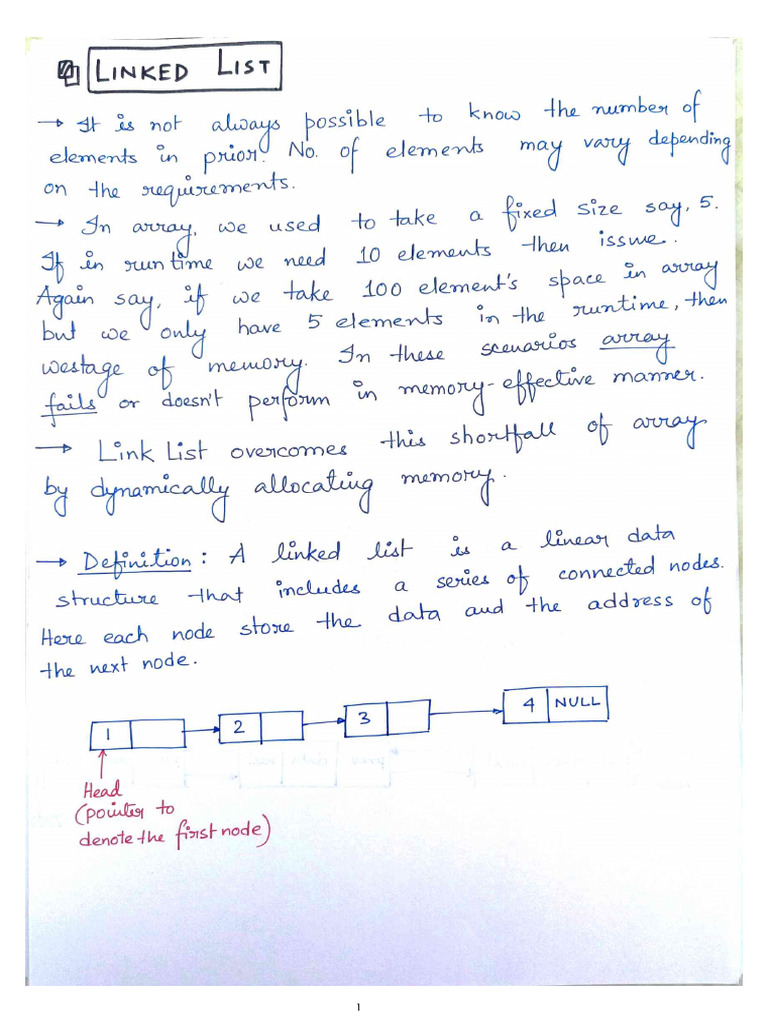 LINKED LIST
→ It is not always possible to know the number of
elements in prior. No. of elements may vary depending
on the requirements.
→ In array, we used to take a fixed size say, 5.
If in runtime we need 10 elements then issue.
Again say, if we take 100 element's space in array
but we only have 5 elements in the runtime, then
westage of memory. In these scenarios array
fails or doesn't perform in memory-effective manner.
→ Link List overcomes this shortfall of array
by dynamically allocating memory.
→ Definition : A linked list is a linear data
structure that includes a series of connected nodes.
Here each node store the data and the address of
the next node.
1 2 3 4 NULL
Head
(pointer to
denote the first node)
1